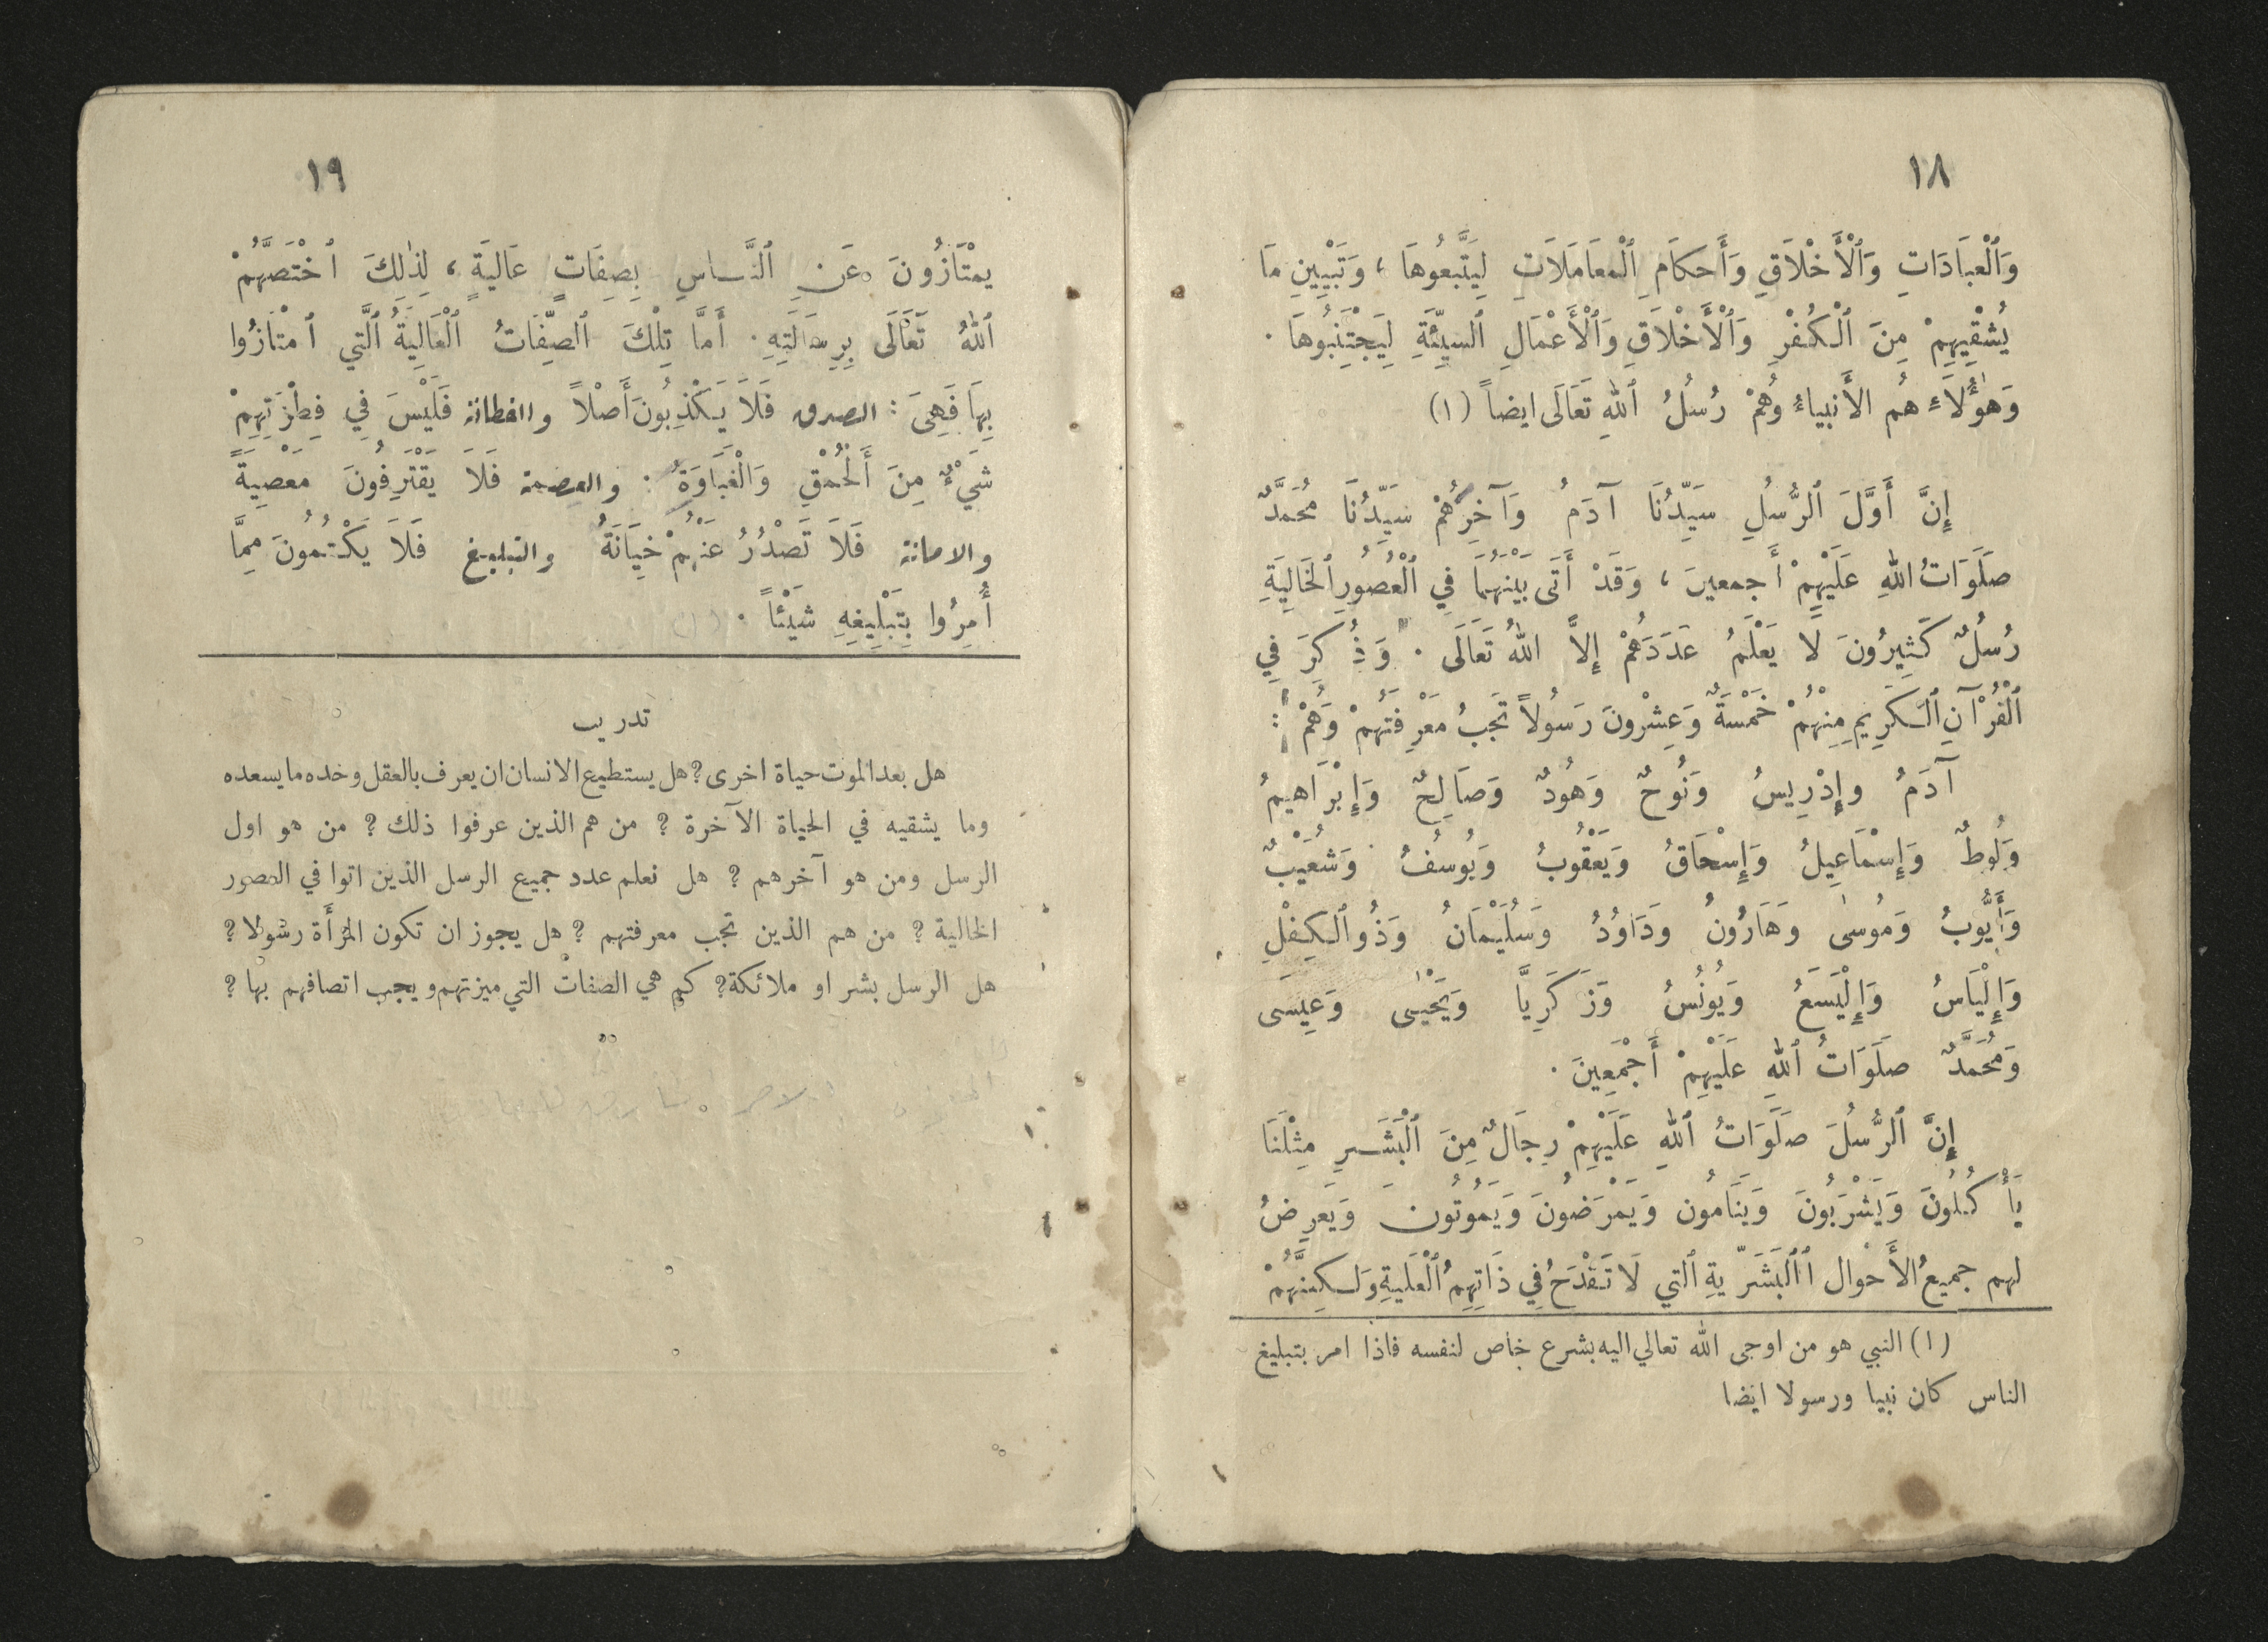 ١٨
وَٱلْعبَادَاتِ وَٱلْأَخْلَاقِ وَأَحكَامِ ٱلْمعَامَلَاتِ لِيَتَّبعُوهَا ، وَتَبْيِينِ مَا
يُشْقِيهِمْ مِنَ ٱلْكُفْرِ وَٱلْأَخْلَاقِ وَٱلْأَعْمَالِ ٱلسيِّئَةِ لِيَجْتَنِبُوهَا .
وَهٰؤُلَاءِ هُم الأَنبياءُ وَهُمْ رُسُلُ ٱللهِ تَعَالَى ايضاً (١)
إِنَّ أَوَّلَ ٱلرُّسُلِ سَيِّدُنَا آدَمُ وَآخِرُهُمْ سَيِّدُنَا مُحَمَّدٌ
صَلَوَاتُ اللهِ عَلَيْهِمْ أَجمعينَ ، وَقَدْ أَتَى بَيْنَهُمَا فِي ٱلْعُصُورِ ٱلخَالِيَةِ
رُسُلٌ كَثِيرُونَ لَا يَعْلَمُ عَدَدَهُمْ إِلاَّ اللهُ تَعَالَى . وَذُكِرَ فِي
ٱلْقُرْآنِ ٱلْكَرِيمِ مِنْهُمْ خَمْسَةٌ وَعِشْرُونَ رَسُولاً تَجِبُ مَعْرِفَتُهُمْ وَهُمْ :
آدَمُ وإِدْرِيسُ وَنُوحٌ وَهُودٌ وَصَالِحٌ وَإِبْرَاهِيمُ
وَلُوطٌ وَإِسْمَاعِيلُ وَإِسْحَاقُ وَيَعْقُوبُ وَيُوسُفُ وَشُعَيْبٌ
وَأَيُّوبُ وَمُوسٰى وَهَارُونُ وَدَاوُدُ وَسُلَيْمَانُ وَذُو ٱلْكِفْلِ
وَإِلْيَاسُ وَإِلْيَسَعُ وَيُونُسُ وَزَكَرِيَّا وَيَحْيٰى وَعِيسَى
وَمُحَمَّدٌ صَلَوَاتُ ٱللهِ عَلَيْهِمْ أَجْمَعِينَ .
إِنَّ ٱلرُّسُلَ صَلَوَاتُ ٱللهِ عَلَيْهِمْ رِجَالٌ مِنَ ٱلْبَشَرِ مِثْلَنَا
يَأْكُلُونَ وَيَشْرَبُونَ وَيَنَامُون وَيَمْرَضُونَ وَيَمُوتُونَ وَيَعرِضُ
لهم جميعُ الأَحوال ٱلْبَشَرّيةِ ٱلتي لَا تَقْدَحُ فِي ذَاتِهِمُ ٱلْعَليةِ وَلـكِنَّهُمْ
(١) النبي هو من اوحى الله تعالي اليه بشرع خاص لنفسه فاذا امر بتبليغ
الناس كان نبيا ورسولا ايضا
١٩
يمْتَازُونَ عَنِ ٱلنَّاسِ بِصِفَاتٍ عَاليَةٍ ، لِذٰلِكَ ٱخْتَصَّهُمْ
ٱللهُ تَعَالَى بِرِسَالَتِهِ . أَمَّا تِلْكَ ٱلصِّفَاتُ ٱلْعَالِيَةُ ٱلَّتي ٱمْتَازُوا
بِهَا فَهِيَ : الصدق فَلَا يَكْذِبُونَ أَصْلاً والفطانة فَلَيْسَ فِي فِطْرَتِهِمْ
شَيْءٌ مِنَ ٱلْحُمْقِ وَالْغَبَاوَةِ : والعصمة فَلَا يَقْتَرِفُونَ مَعْصِيَةً
والامانة فَلَا تَصْدُرُ عَنْهُمْ خِيَانَةٌ والتبليغ فَلَا يَكْتُمُونَ مِمَّا
أُمِرُوا بِتَبْلِيغِهِ شَيْئاً .
تدريب
هل بعد الموت حياة اخرى؟ هل يستطيع الانسان ان يعرف بالعقل وحده ما يسعده
وما يشقيه في الحياة الآخرة ؟ من هم الذين عرفوا ذلك ؟ من هو اول
الرسل ومن هو آخرهم ؟ هل نعلم عدد جميع الرسل الذين اتوا في العصور
الخالية ؟ من هم الذين تجب معرفتهم ؟ هل يجوز ان تكون المرأَة رسولا ؟
هل الرسل بشر او ملائكة؟ كم هي الصفات التي ميزتهم ويجب اتصافهم بها ؟